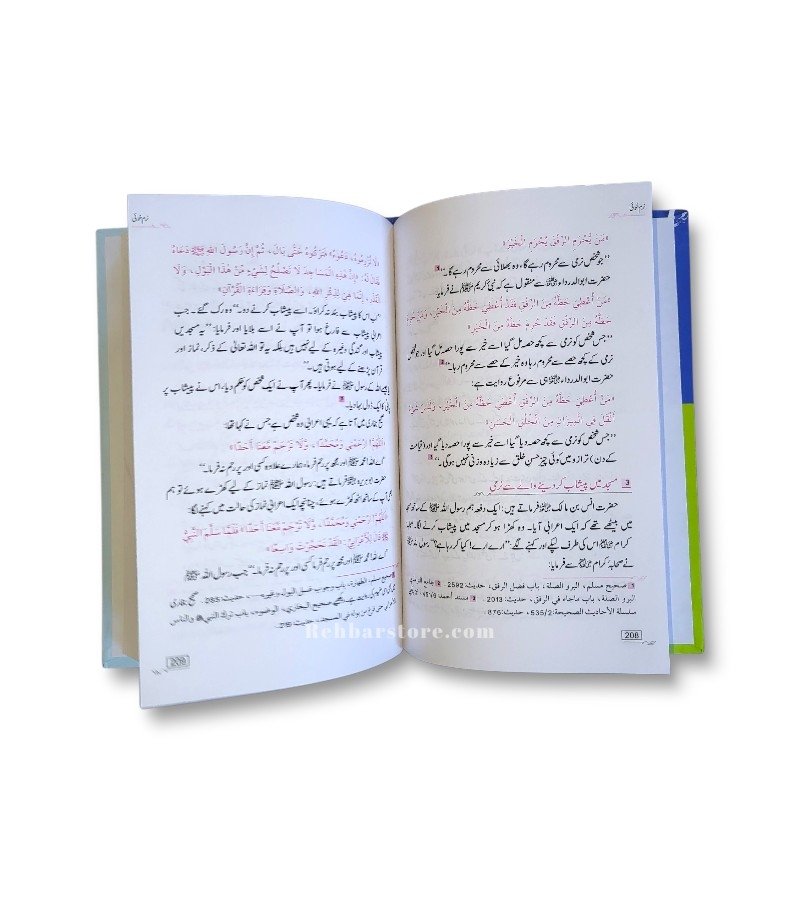 نرم خوئی
«مَنْ يُحْرَمِ الرِّفْقَ يُحْرَمِ الْخَيْرَ»
”جو شخص نرمی سے محروم رہے گا، وہ بھلائی سے محروم رہے گا۔“
حضرت ابوالدرداء رضی اللہ عنہ سے منقول ہے کہ نبی کریم ﷺ نے فرمایا:
«مَنْ أُعْطِيَ حَظَّهُ مِنَ الرِّفْقِ فَقَدْ أُعْطِيَ حَظَّهُ مِنَ الْخَيْرِ، وَمَنْ حُرِمَ
حَظَّهُ مِنَ الرِّفْقِ فَقَدْ حُرِمَ حَظَّهُ مِنَ الْخَيْرِ»
”جس شخص کو نرمی سے کچھ حصہ مل گیا اسے خیر سے پورا حصہ مل گیا اور جو شخص
نرمی کے کچھ حصے سے محروم رہا وہ خیر کے حصے سے محروم رہا۔“
حضرت ابوالدرداء رضی اللہ عنہ ہی سے مرفوع روایت ہے:
«مَنْ أُعْطِيَ حَظَّهُ مِنَ الرِّفْقِ أُعْطِيَ حَظَّهُ مِنَ الْخَيْرِ، وَلَيْسَ شَيْءٌ
أَثْقَلَ فِي الْمِيزَانِ مِنَ الْخُلُقِ الْحَسَنِ»
”جس شخص کو نرمی سے کچھ حصہ دیا گیا اسے خیر سے پورا حصہ دیا گیا اور (قیامت
کے دن) ترازو میں کوئی چیز حسنِ خلق سے زیادہ وزنی نہیں ہوگی۔“
3 مسجد میں پیشاب کر دینے والے سے نرمی
حضرت انس بن مالک رضی اللہ عنہ فرماتے ہیں: ایک دفعہ ہم رسول اللہ ﷺ کے ہمراہ مسجد
میں بیٹھے تھے کہ ایک اعرابی آیا۔ وہ کھڑا ہو کر مسجد میں پیشاب کرنے لگا۔ صحابہ
کرام اس کی طرف لپکے اور کہنے لگے: ”ارے ارے! کیا کر رہا ہے؟“ رسول اللہ ﷺ
نے صحابہ کرام سے فرمایا:
صحيح مسلم، البر والصلة، باب فضل الرفق، حديث: 2592. جامع الترمذي،
البر والصلة، باب ماجاء في الرفق، حديث: 2013. مسند أحمد:
سلسلة الأحاديث الصحيحة: 535/2، حديث: 876.
208
نرم خوئی
«لَا تُزْرِمُوهُ، دَعُوهُ» فَتَرَكُوهُ حَتَّى بَالَ، ثُمَّ إِنَّ رَسُولَ اللهِ ﷺ دَعَاهُ
فَقَالَ لَهُ: «إِنَّ هٰذِهِ الْمَسَاجِدَ لَا تَصْلُحُ لِشَيْءٍ مِنْ هٰذَا الْبَوْلِ، وَلَا
الْقَذَرِ، إِنَّمَا هِيَ لِذِكْرِ اللهِ، وَالصَّلَاةِ وَقِرَاءَةِ الْقُرْآنِ»
اس کا پیشاب بند نہ کراؤ۔ اسے پیشاب کرنے دو۔“ وہ رک گئے۔ جب
اعرابی پیشاب سے فارغ ہوا تو آپ نے اسے بلایا اور فرمایا: ”یہ مسجدیں
پیشاب اور گندگی وغیرہ کے لیے نہیں ہیں بلکہ یہ تو اللہ تعالیٰ کے ذکر، نماز اور
قرآن پڑھنے کے لیے ہوتی ہیں۔“
اللہ کے رسول ﷺ نے فرمایا۔ پھر آپ نے ایک شخص کو حکم دیا، اس نے پیشاب پر
پانی کا ایک ڈول بہا دیا۔
صحیح بخاری میں آتا ہے کہ یہی اعرابی وہ شخص ہے جس نے کہا تھا:
«اَللّٰهُمَّ ارْحَمْنِي وَمُحَمَّدًا، وَلَا تَرْحَمْ مَعَنَا أَحَدًا»
”اے اللہ! محمد ﷺ اور مجھ پر رحم فرما، ہمارے علاوہ کسی اور پر رحم نہ فرما۔“
حضرت ابوہریرہ رضی اللہ عنہ فرماتے ہیں: رسول اللہ ﷺ نماز کے لیے کھڑے ہوئے تو ہم
بھی آپ کے ساتھ اٹھ کھڑے ہوئے، چنانچہ ایک اعرابی نماز کی حالت میں کہنے لگا:
«اَللّٰهُمَّ ارْحَمْنِي وَمُحَمَّدًا، وَلَا تَرْحَمْ مَعَنَا أَحَدًا» فَلَمَّا سَلَّمَ النَّبِيُّ
ﷺ قَالَ لِلْأَعْرَابِيِّ: «لَقَدْ حَجَّرْتَ وَاسِعًا»
”اے اللہ! محمد ﷺ اور مجھ پر رحم فرما، کسی اور پر رحم نہ فرما۔“ جب رسول اللہ ﷺ
صحيح مسلم، الطهارة، باب وجوب غسل البول وغيره، حديث: 285. صحیح بخاری
صحيح البخاري، الوضوء، باب ترك النبي ﷺ والناس
209
Rehbarstore.com